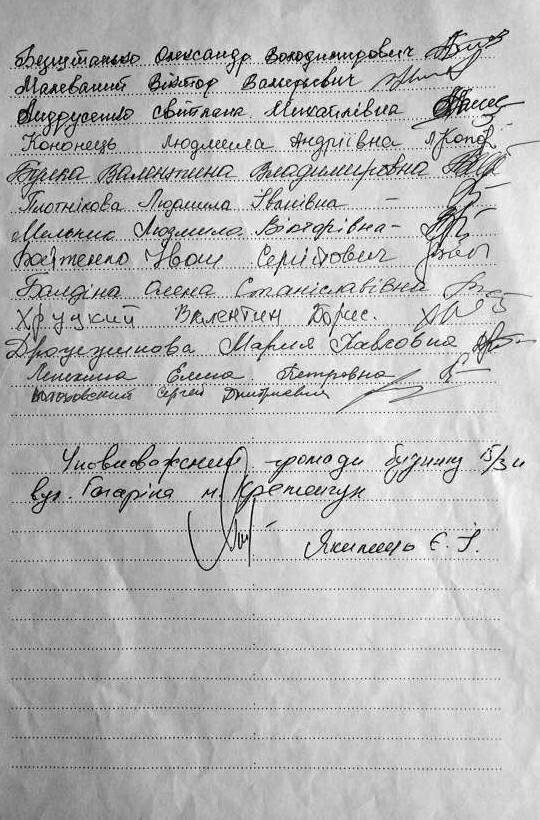 Безштанько Олександр Володимирович
Малеваний Віктор Валерьевич
Андрусенко Світлана Михайлівна
Кононець Людмила Андріївна
Бурека Валентина Владимировна
Плотнікова Людмила Іванівна -
Мельник Людмила Вікторівна -
Іван Сергійович
Балдіна Олена Станіславівна
Хруцкий Валентин Борис.
Мария Павловна
Елена Петровна
Сергей Дмитриевич
Уповноважений громади будинку 15/3 и
вул. Гагаріна м. Кременчук
Якимець Є. І.